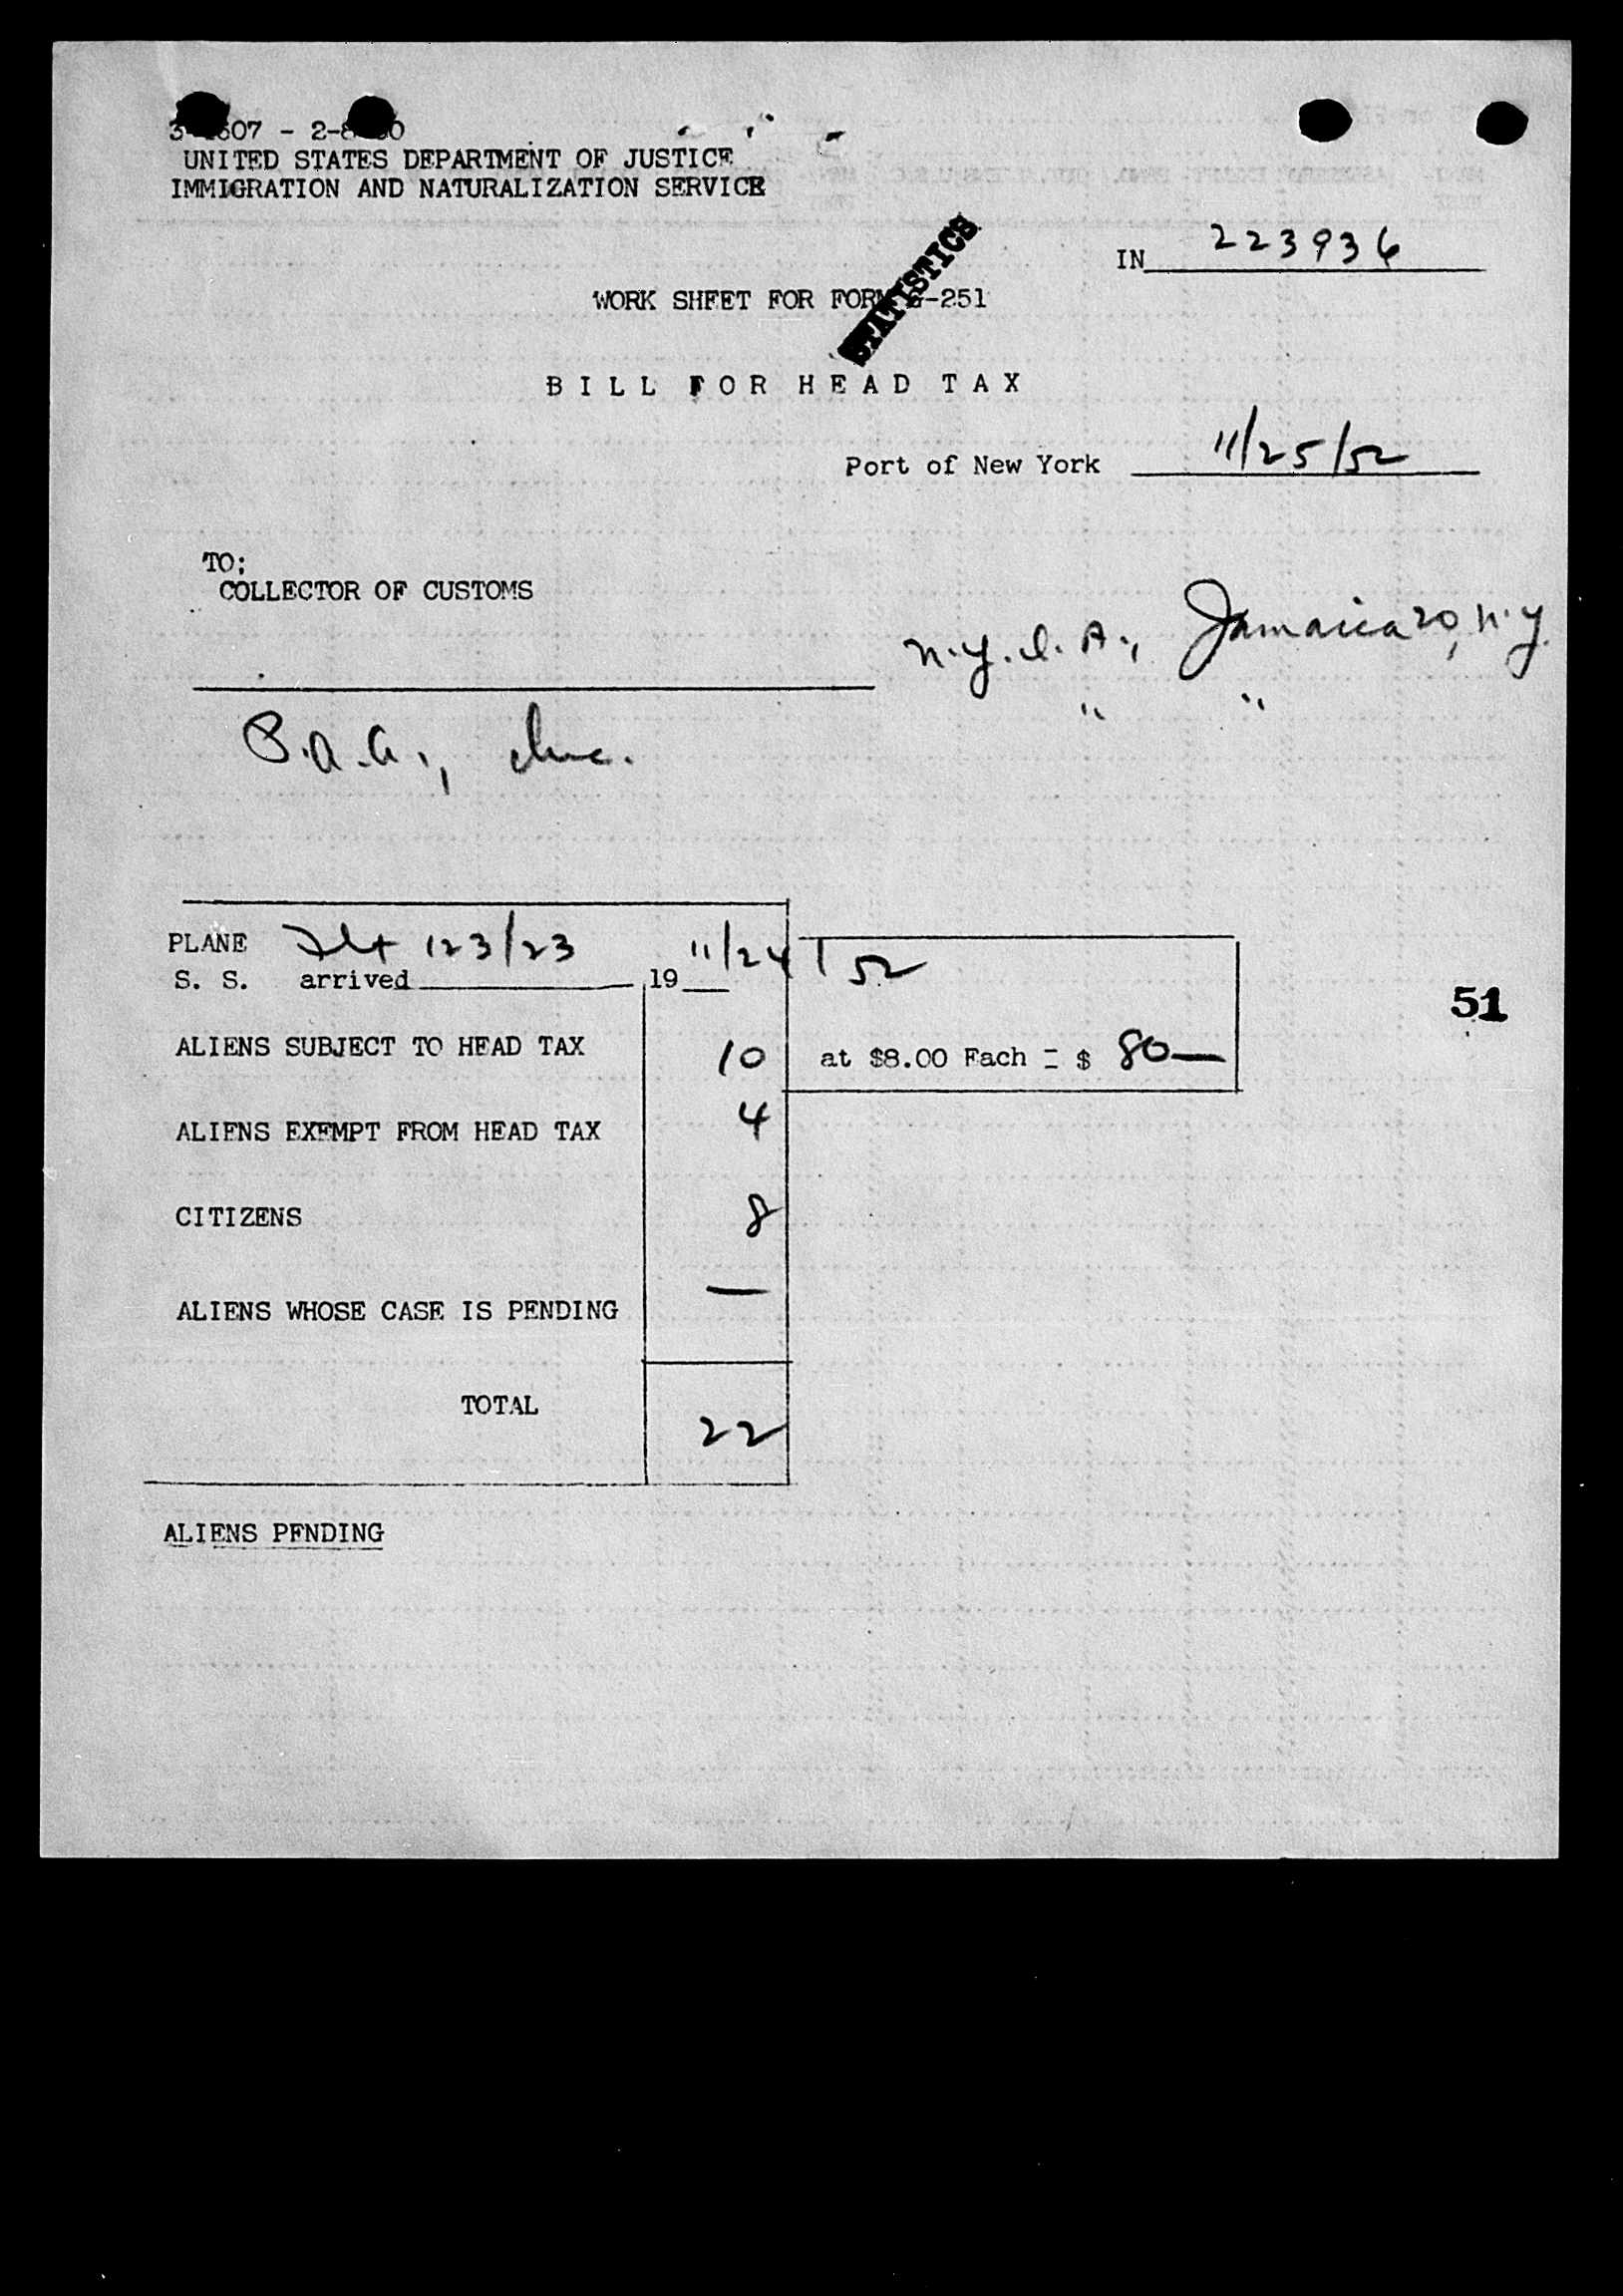 UNITED STATES DEPARTMENT OF JUSTICE
IMMIGRATION AND NATURALIZATION SERVICE
STATISTICS
IN 223936
WORK SHEET FOR FORM G-251
BILL FOR HEAD TAX
Port of New York 11/25/52
TO:
COLLECTOR OF CUSTOMS
N.Y.I.A., Jamaica 20, N.Y.
" "
P.A.A., Inc.
PLANE Flt 123/23 11/24/52
S. S. arrived 19
51
ALIENS SUBJECT TO HEAD TAX 10 at $8.00 Each = $ 80—
ALIENS EXEMPT FROM HEAD TAX 4
CITIZENS 8
ALIENS WHOSE CASE IS PENDING —
TOTAL 22
ALIENS PENDING